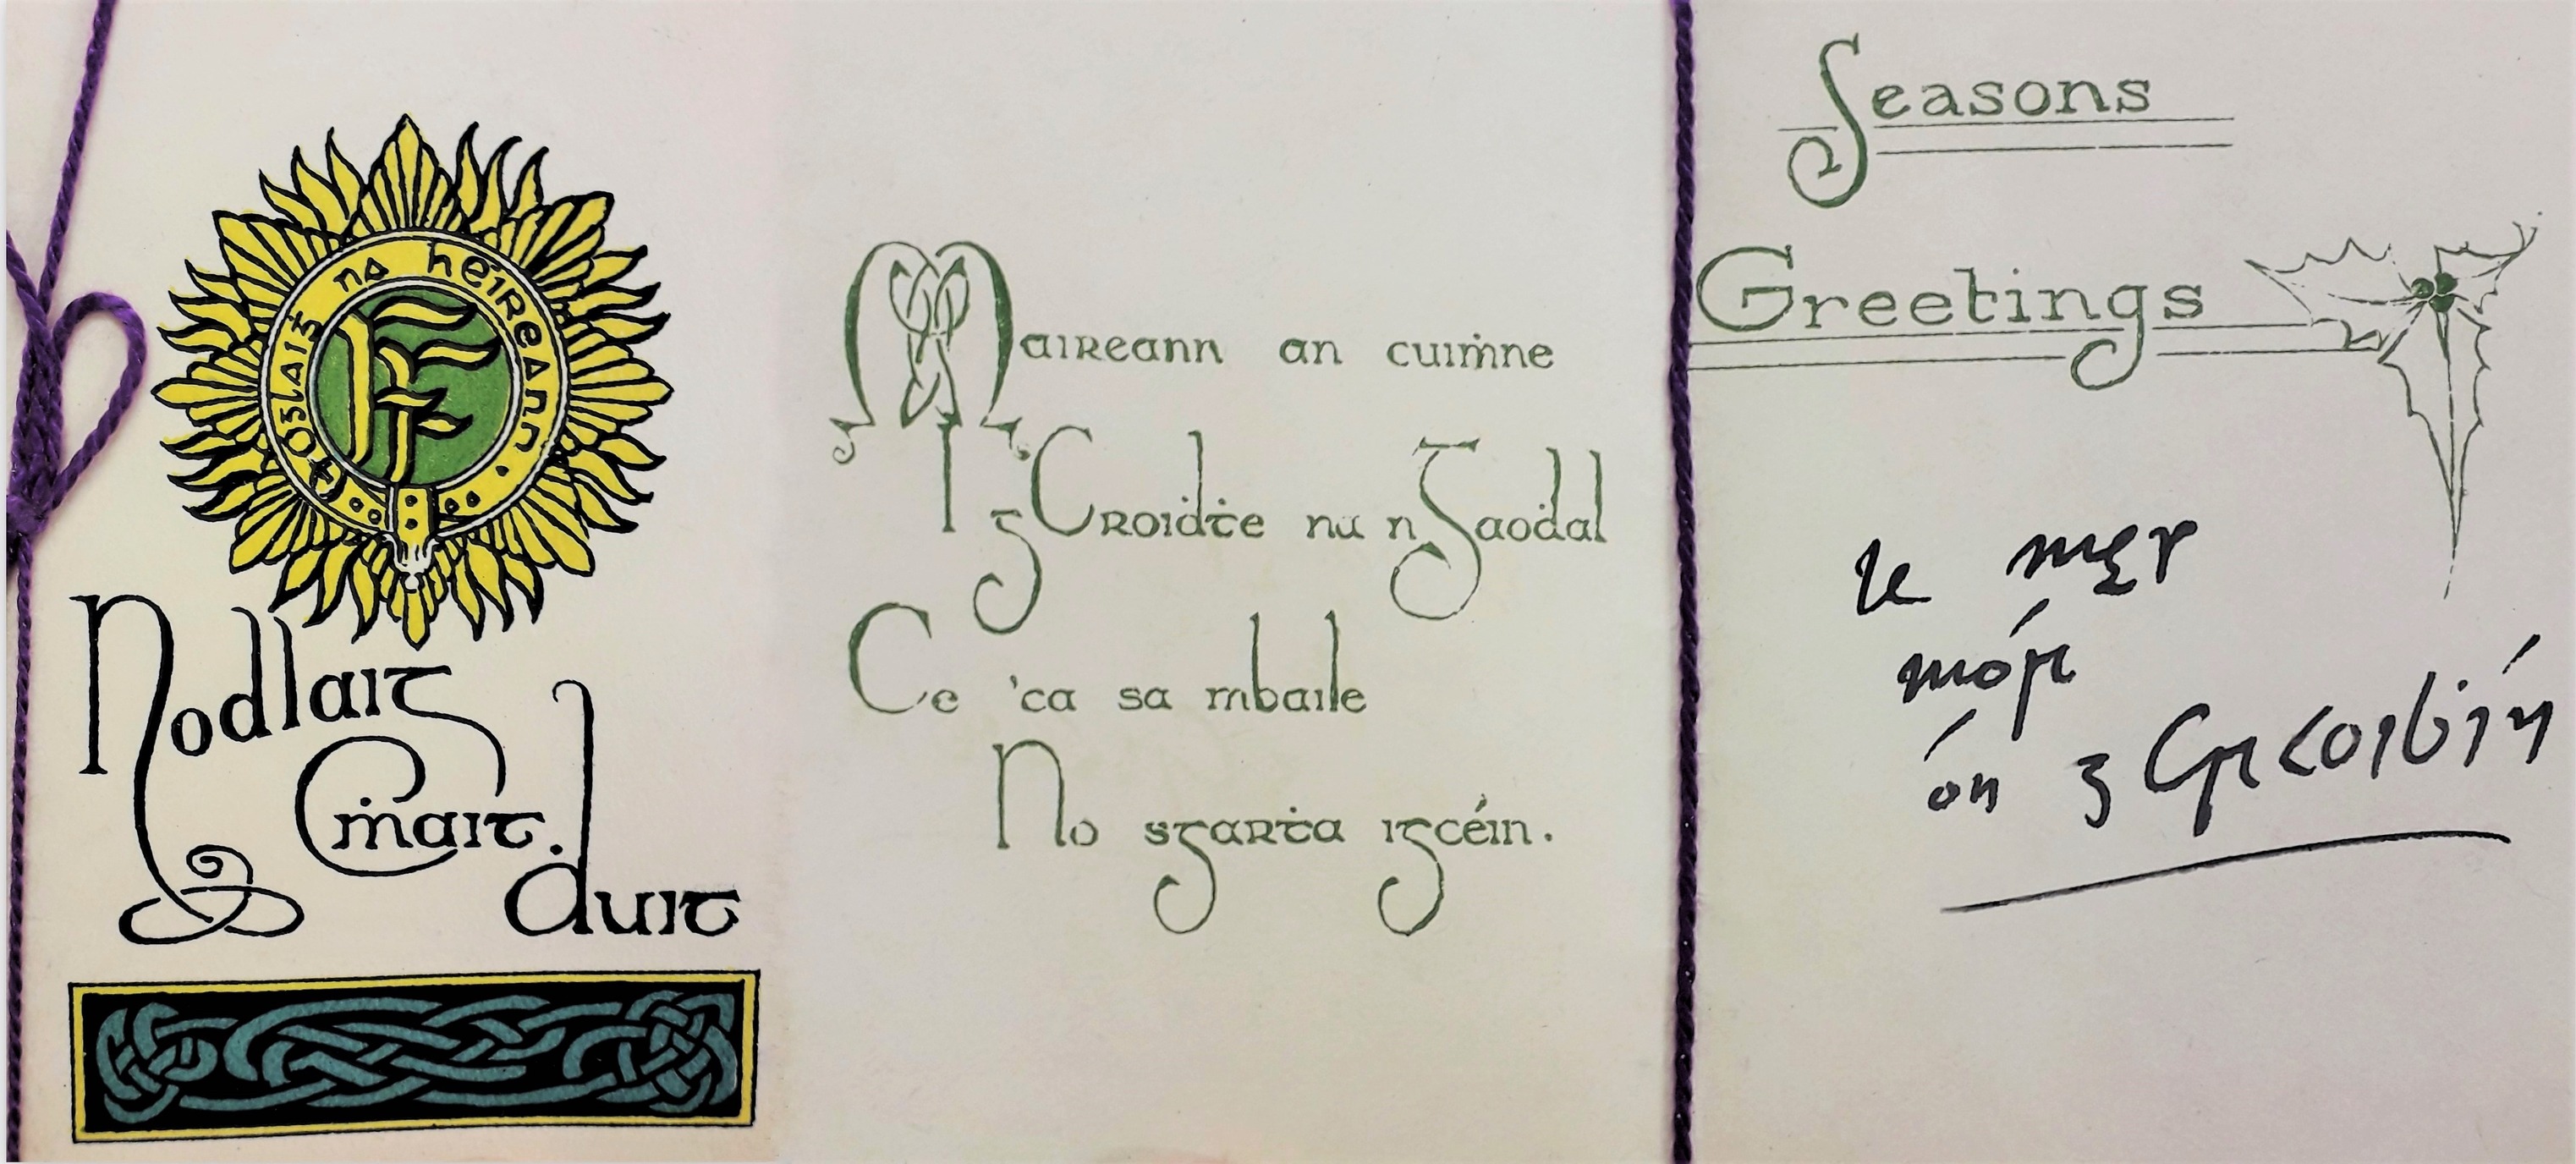 Óglaiġ na hÉireann
FF
Nodlaig
Ṁait
duit
Maireann an cuiṁne
I gCroiḋṫe na nGaoḋal
Ce 'ca sa mbaile
No sgarṫa i gcéin.
Seasons
Greetings
le meas
mór
ón gCraoiḃín